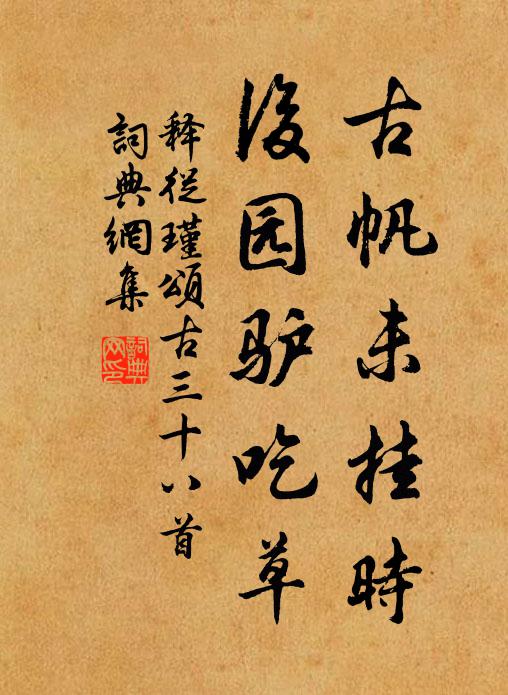 古帆未挂時
後园驴吃草
释從瑾頌古三十八首
詞典網集
詞典網印